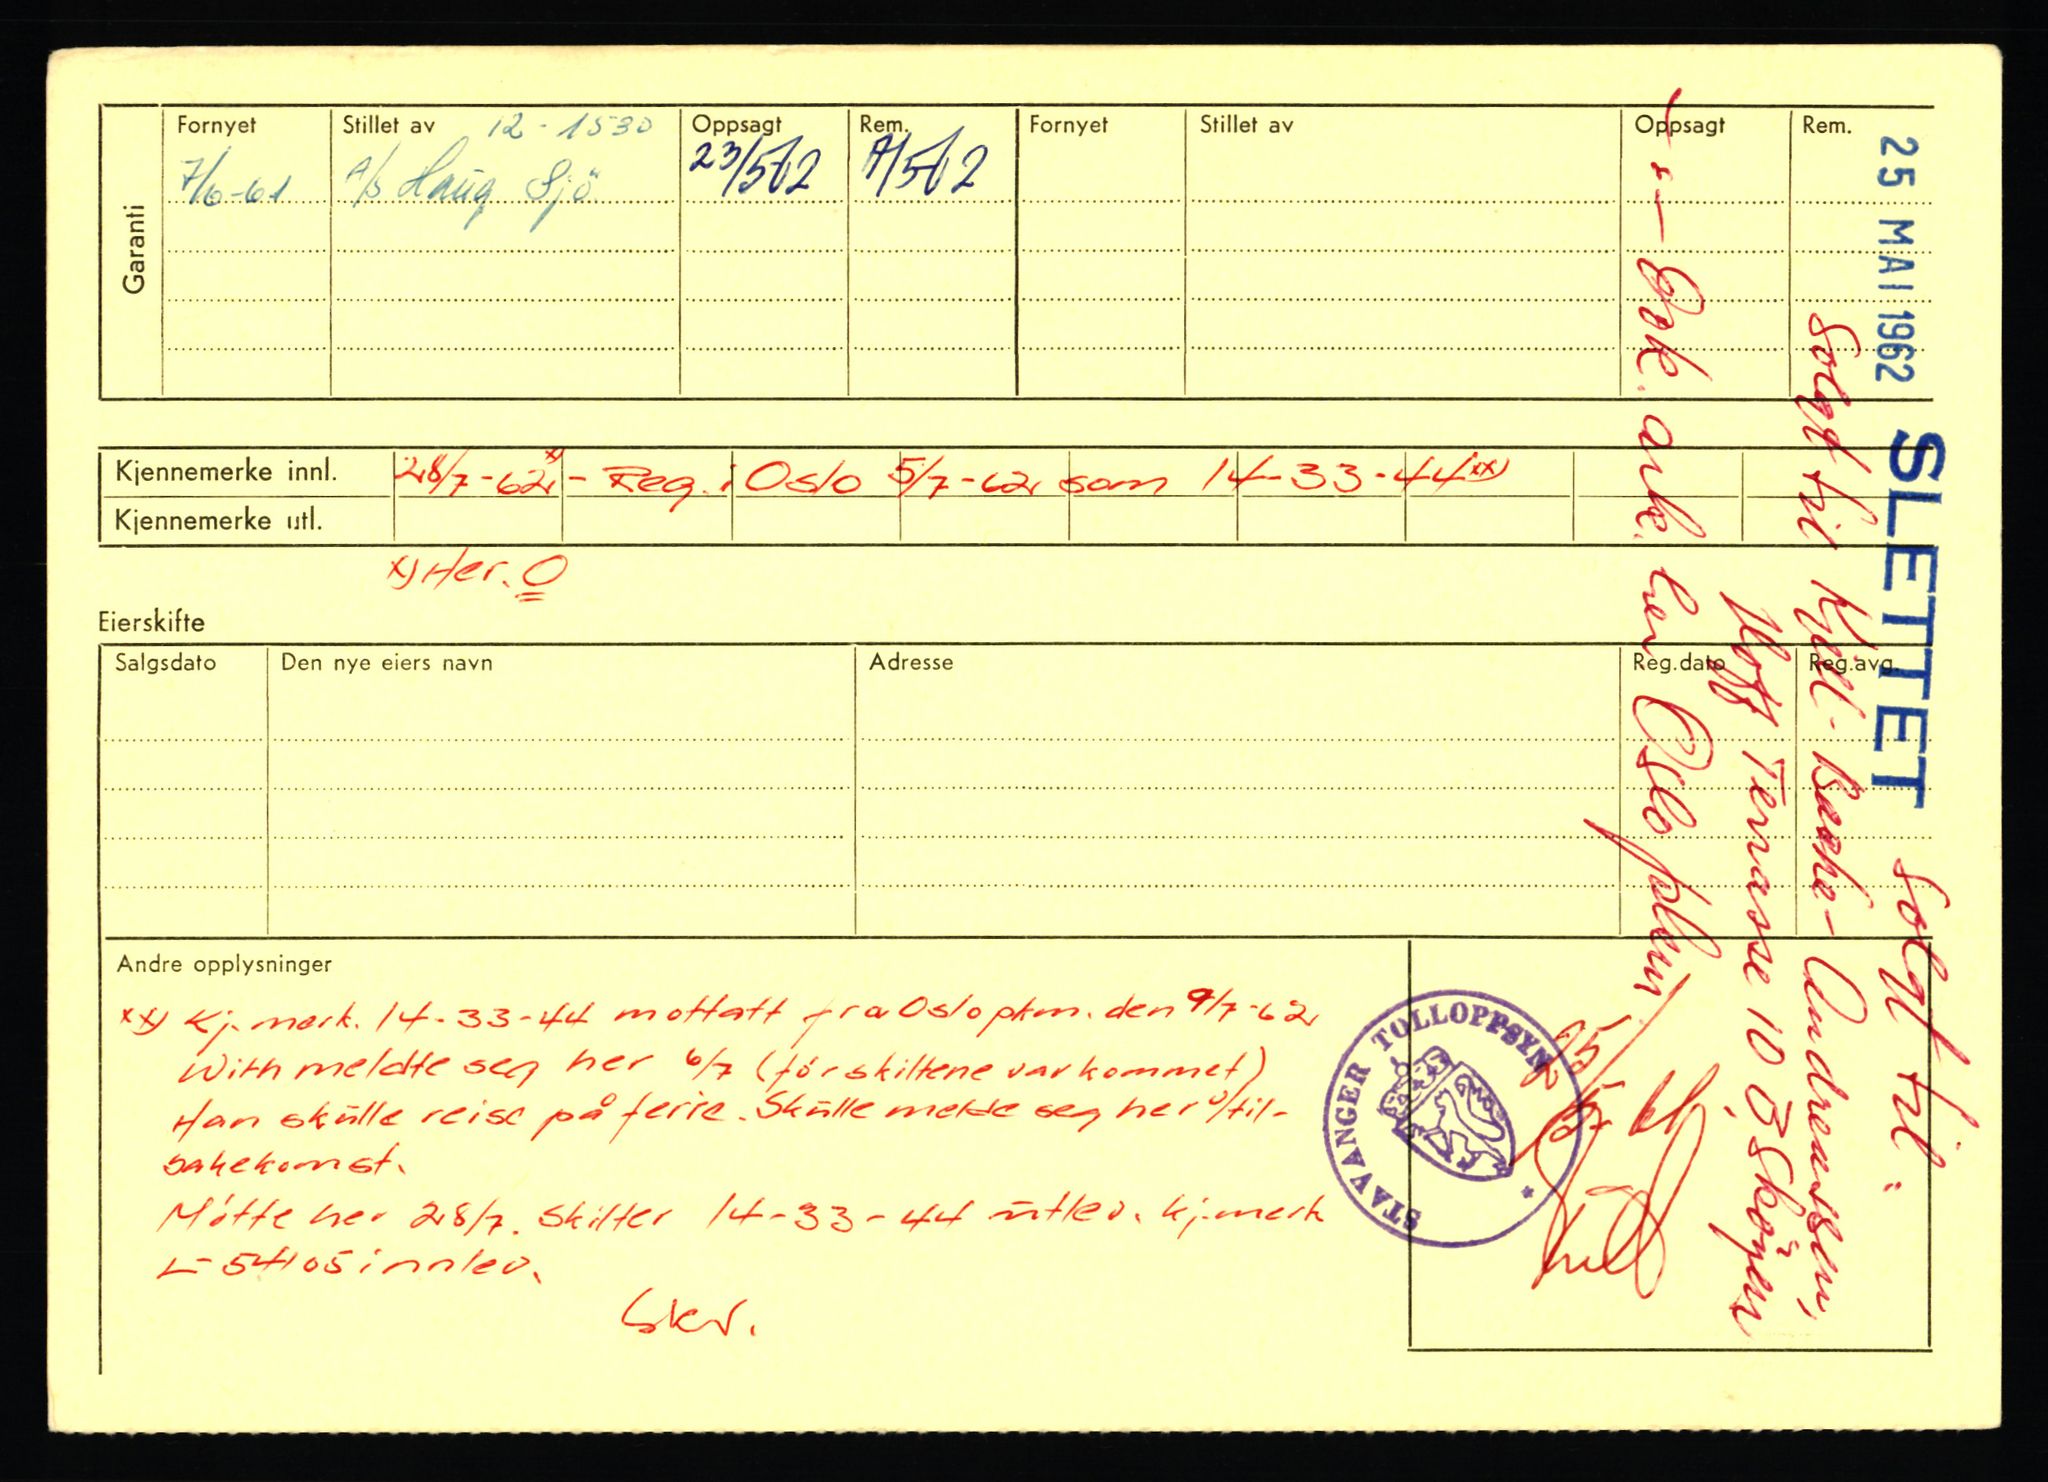 Garanti
Fornyet Stillet av 12-1530 Oppsagt Rem. Fornyet Stillet av Oppsagt Rem.
7/6-61 A/S Haug Sjö 23/562
Kjennemerke innl. 28/7-62 x) - Reg. i Oslo 5/7-62 som 14-33-44 xx)
Kjennemerke utl.
x) Her. O
Eierskifte
Salgsdato Den nye eiers navn Adresse Reg.dato Reg.avg.
Andre opplysninger
xx) Kj.merk. 14-33-44 mottatt fra Oslo pkm. den 9/7-62
With meldte seg her 6/7 (før skiltene var kommet)
Han skulle reise på ferie. Skulle melde seg her v/til-
bakekomst.
Møtte her 28/7. Skilter 14-33-44 utlev. kj.merk
L-54105 innlev.
Skr.
STAVANGER TOLLOPPSYN
25 MAI 1962
SLETTET
Solgt til:
Solgt til Kjell Bache-Andreassen,
Hoff Terrasse 10, Ø Skøyen
Oslo